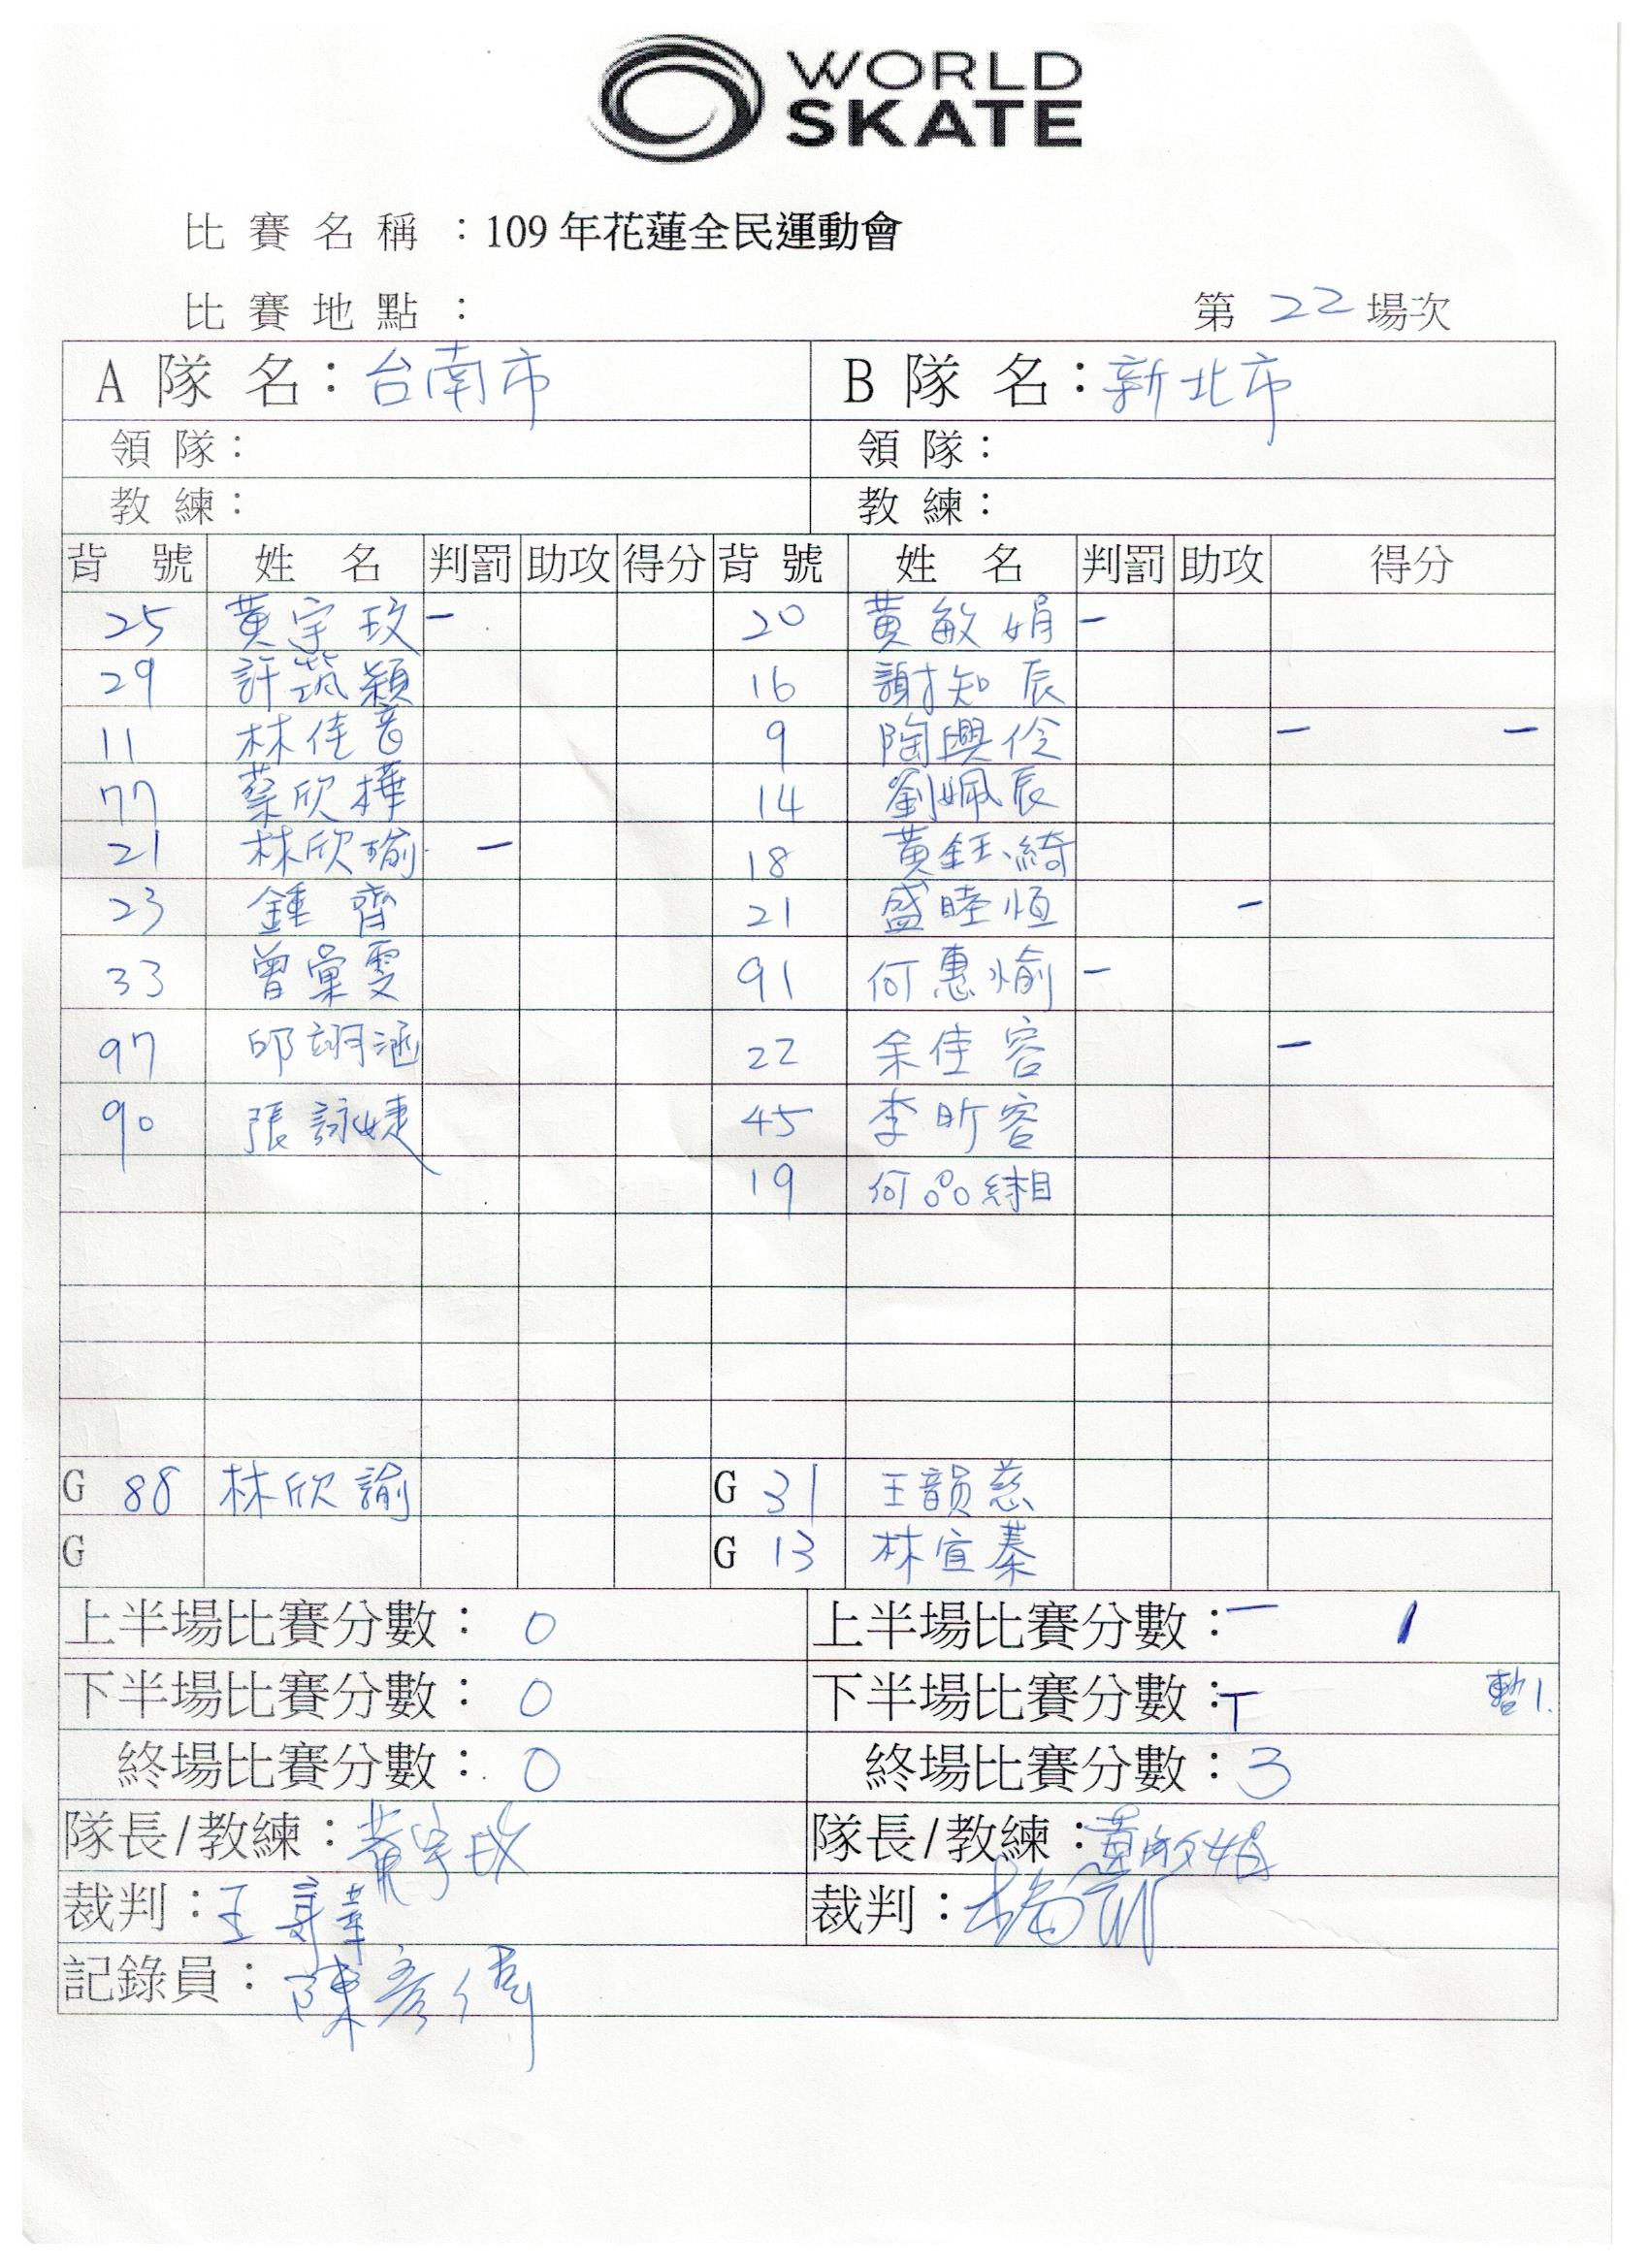 WORLD
SKATE
比賽名稱：109年花蓮全民運動會
比賽地點： 第 22 場次
A 隊 名：台南市 B 隊 名：新北市
領 隊： 領 隊：
教 練： 教 練：
背 號 姓 名 判罰 助攻 得分 背 號 姓 名 判罰 助攻 得分
25 黃宇玟 一 20 黃敏娟 一
29 許筑穎 16 謝知辰
11 林佳音 9 陶興伶 一 一
77 蔡欣樺 14 劉姵辰
21 林欣瑜 一 18 黃鈺綺
23 鍾齊 21 盛睦恒 一
33 曾彙雯 91 何惠愉 一
97 邱翊涵 22 余佳容 一
90 張詠婕 45 李昕容
19 何品緗
G 88 林欣諭 G 31 王韻慈
G G 13 林宜蓁
上半場比賽分數： 0 上半場比賽分數：一 1
下半場比賽分數： 0 下半場比賽分數：T 暫1.
終場比賽分數： 0 終場比賽分數：3
隊長/教練：黃宇玟 隊長/教練：黃敏娟
裁判：王 裁判：
記錄員：陳彥